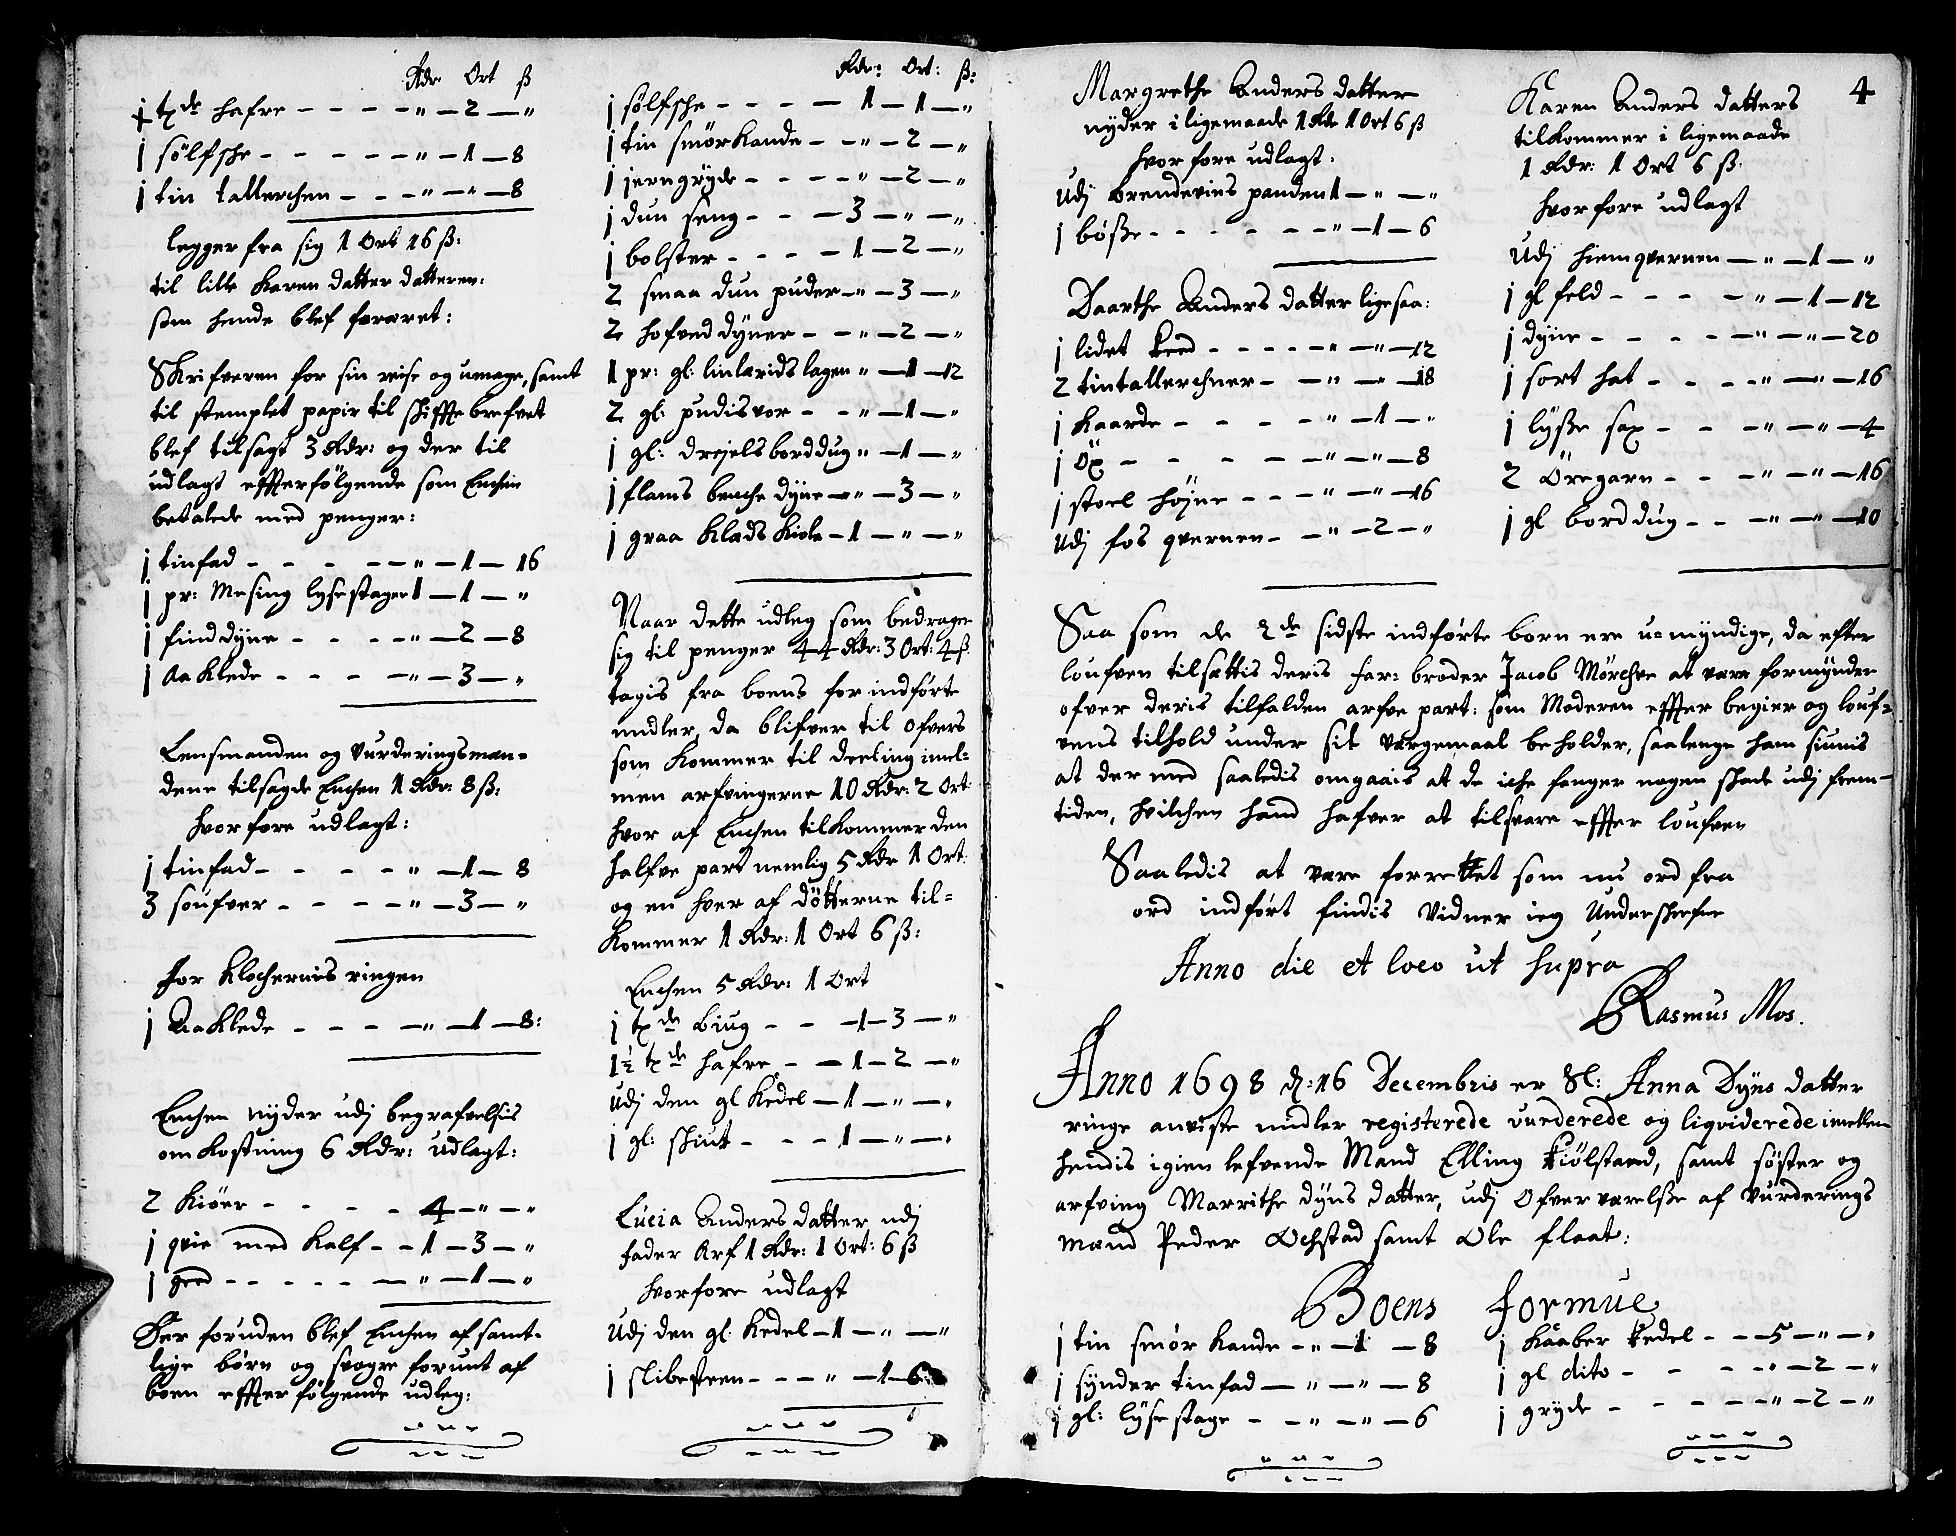 Rdr Ort ß
1 tde hafre - - - - " - 2 - "
1 sölfsche - - - - - " - 1 - 8
1 tin tallerchen - - - " - " - 8
legger fra sig 1 Ort 16 ß:
til lille Karen datter datteren:
som hende blef foraret:
Skrifveren for sin reise og umage, samt
til stemplet papir til schiffte brefvet
blef tilsagt 3 Rdr: og der til
udlagt effterfölgende som Enchen
betalede med penger:
1 tinfad - - - - - " - 1 - 16
1 pr: Mesing lysestager 1 - 1 - "
1 find dyne - - - - " - 2 - 8
1 Aaklede - - - - " - 3 - "
Lensmanden og vurderingsmen-
dene tilsagde Enchen 1 Rdr: 8 ß:
hvorfore udlagt:
1 tinfad - - - - - " - 1 - 8
3 soufver - - - - " - 3 - "
for klochernis ringen
1 Aaklede - - - - " - 1 - 8:
Enchen nyder udj begrafvelsis
omkostning 6 Rdr: udlagt:
2 Kiöer - - - - - 4 - " - "
1 qvie med Kalf - - 1 - 3 - "
1 geed - - - - - - " - 1 - "
Der foruden blef Enchen af samt-
lige börn og svogre forunt af
boen effterfölgende udleg:
Rdr: Ort: ß:
1 sölfsche - - - - 1 - 1 - "
1 tin smörkande - - " - 2 - "
1 jerngryde - - - - " - 2 - "
1 dun seng - - - 3 - " - "
1 bolster - - - - 1 - 2 - "
2 smaa dun puder - " - 3 - "
2 hofved dyner - - " - 2 - "
1 pr: gl: linlaridslagen " - 1 - 12
2 gl: pudisvor - - " - 1 - "
1 gl: drejels borddug " - 1 - "
1 flams benche dyne - " - 3 - "
1 graa Klæds Kiole - 1 - " - "
Naar dette udleg som bedrager
sig til penger 44 Rdr: 3 Ort: 4 ß.
tagis fra boens for indförte
midler, da blifver til ofvers
som Kommer til deeling imel-
men arfvingerne 10 Rdr: 2 Ort:
hvor af Enchen tilkommer den
halfve part nemlig 5 Rdr 1 Ort:
og en hver af döttrerne til-
Kommer 1 Rdr: 1 Ort 6 ß:
Enchen 5 Rdr: 1 Ort
1 tde biug - - - 1 - 3 - "
1½ tde hafre - - 1 - 2 - "
Udj den gl Kedel - 1 - " - "
1 gl: schiut - - - 1 - " - "
Lucia Anders datter udj
fader Arf 1 Rdr: 1 Ort: 6 ß
hvorfore udlagt
Udj den gl: Kedel - 1 - " - "
1 slibesteen - - - " - 1 - 6
4
Margrethe Anders datter
nyder i ligemaade 1 Rdr 1 Ort 6 ß
hvor fore udlagt:
Udj brendeviens panden 1 - " - "
1 bøsse - - - - - - " - 1 - 6
Daarthe Anders datter ligesaa:
1 lidet Keed - - - - - " - " - 12
2 tintallerchner - - " - " - 18
1 Kaarde - - - - - " - 1 - "
1 Öx - - - - - - " - " - 8
1 stoel höjne - - - " - " - 16
Udj fos qvernen - - " - 2 - "
Karen Anders datters
tilkommer i ligemaade
1 Rdr: 1 Ort 6 ß:
hvorfore udlagt
Udj hiemqvernen - " - 1 - "
1 gl feld - - - - " - 1 - 12
1 dyne - - - - - " - " - 20
1 sort hat - - - - " - " - 16
1 lysse sax - - - " - " - 4
2 Öregarn - - - " - " - 16
1 gl borddug - - - " - " - 10
Saa som de 2de sidste indförte born ere u=myndige, da efter
loufven tilsættis deris far: broder Jacob Mörchve at være formynder
ofver deris tilfalden arfve part: som Moderen effter begier og louf-
vens tilhold under sit værgemaal beholder, saalenge ham siunis
at der med saaledis omgaais at de iche fanger nogen schade udj frem-
tiden, hvilchen hand hafver at tilsvare effter loufven
Saaledis at være forrettet som nu ord fra
ord indfört findis Vidner ieg Underschrefne
Anno die et loco ut supra
Rasmus Mos.
Anno 1698 d: 16 Decembris er Sl: Anna Dyns datter
ringe anviste midler registerede vurderede og liqviderede imellem
hendis igien lefvende Mand Elling Kiölstaed, samt söster og
arfving Marrithe Dyns datter, udj ofverværelsse af Vurderings
mænd Peder Ochstad samt Ole flaat:
Boens Formue
1 tin smör Kande - " - 1 - 8
1 synder tinfad - " - " - 8
1 gl: lysestage - - " - " - 6
1 Kaaber Kedel - - 5 - " - "
1 gl dito - - - - " - 2 - "
1 gryde - - - - - " - 2 - "